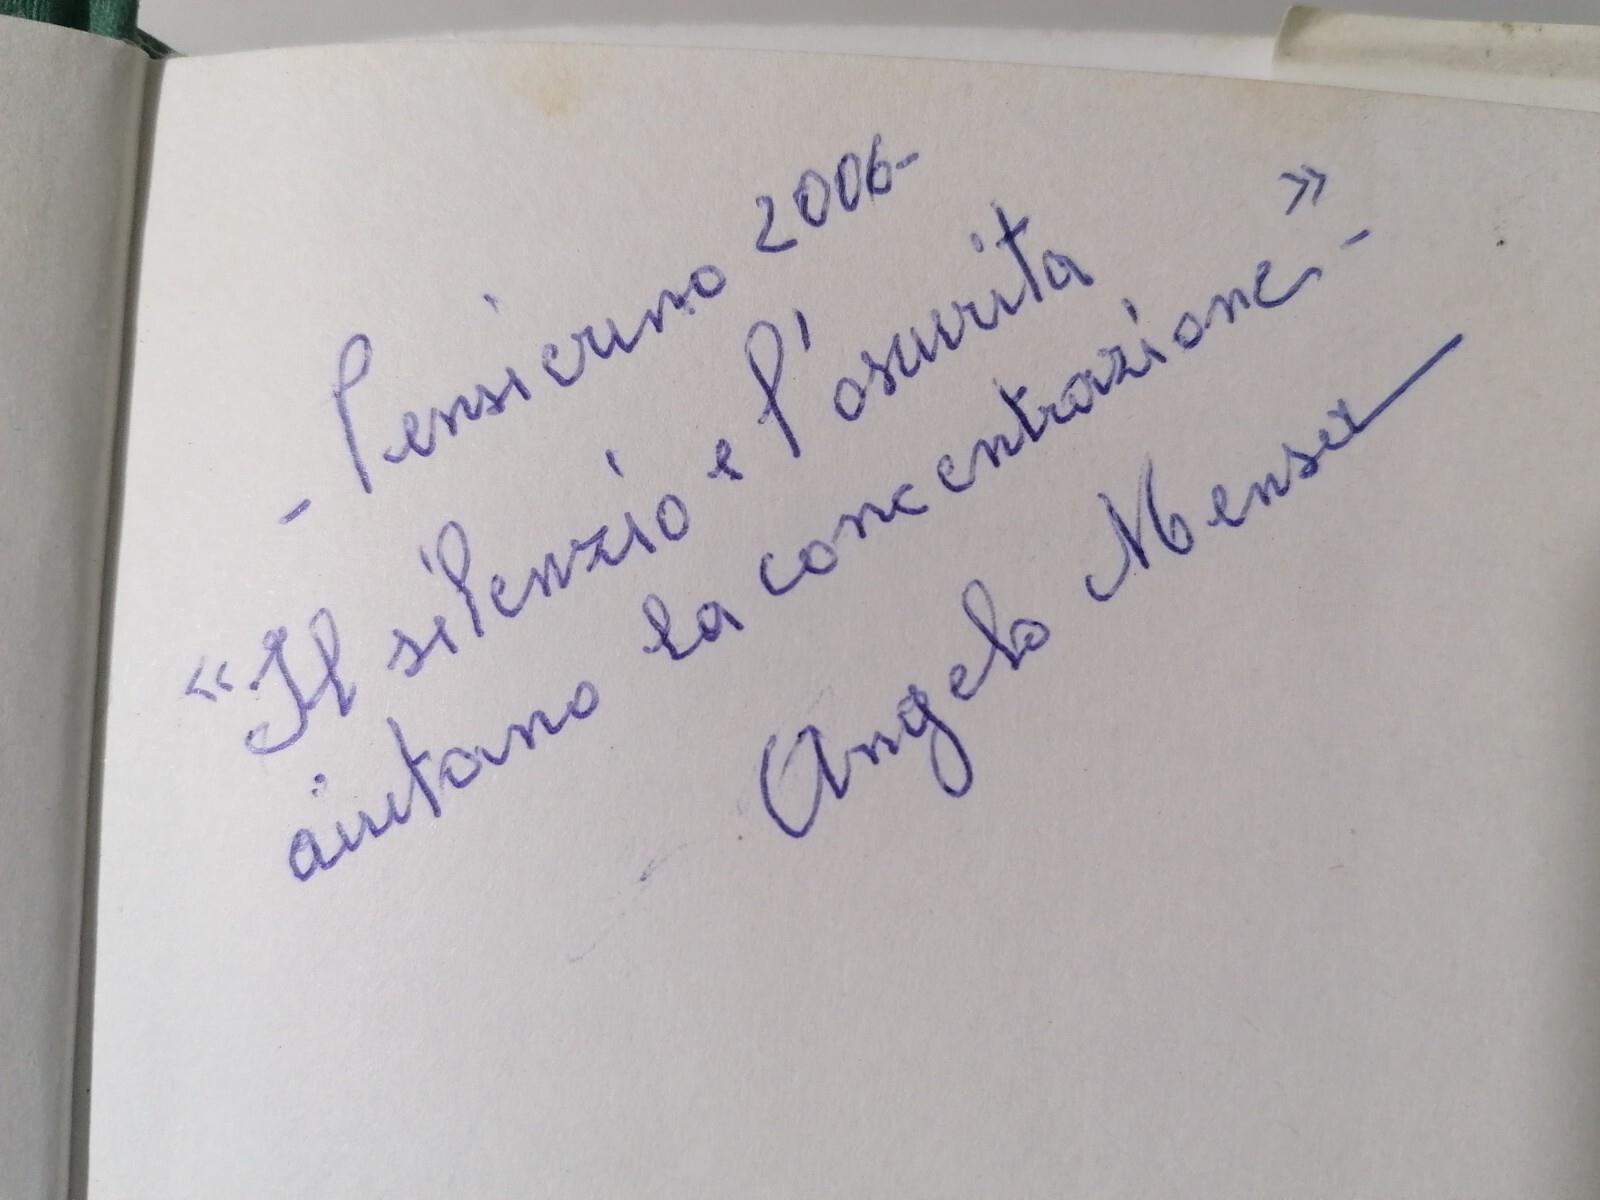 - Pensierino 2006 -
"Il silenzio e l'oscurita
aiutano la concentrazione. - "
Angelo Mensa